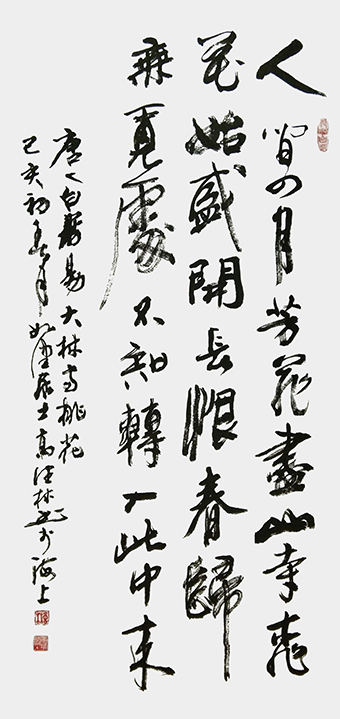 人間四月芳菲盡山寺桃
花始盛開長恨春歸
無覓處不知轉入此中來
唐人白居易大林寺桃花
己亥初春月如居士高林書於海上